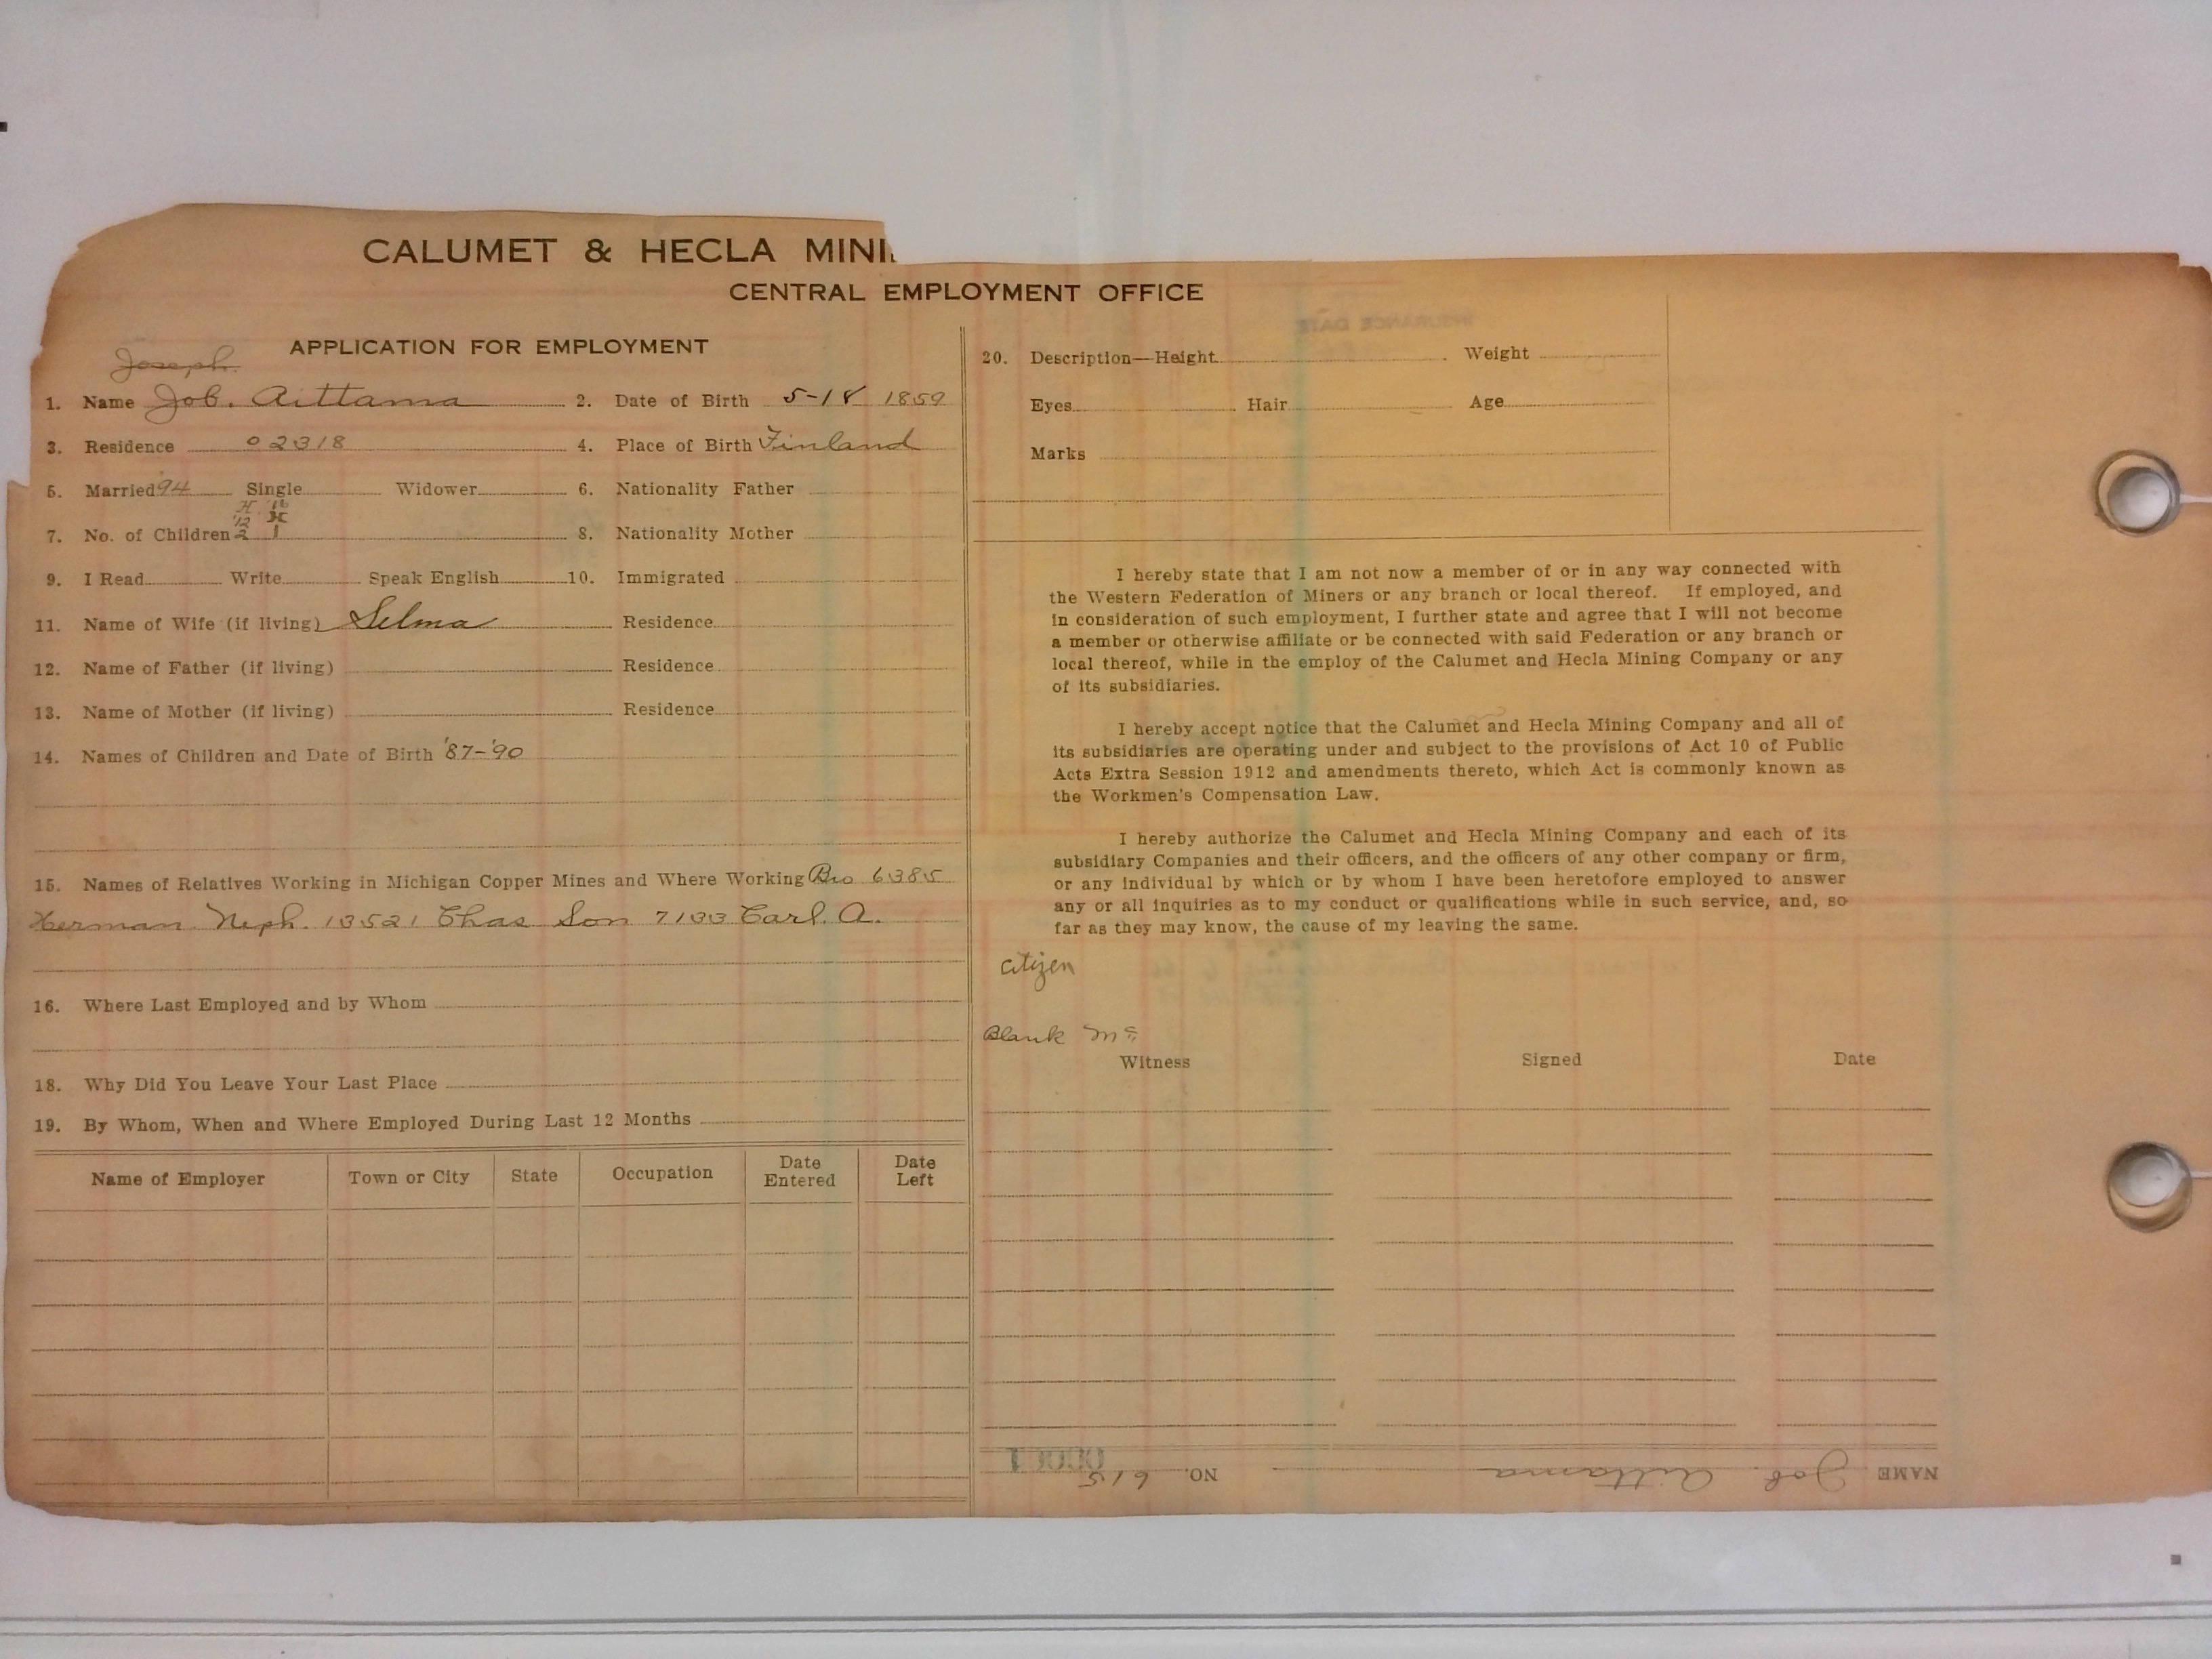 CALUMET & HECLA MINI
CENTRAL EMPLOYMENT OFFICE
APPLICATION FOR EMPLOYMENT
Joseph
1. Name Job. Aittama 2. Date of Birth 5-18 1859
3. Residence 02318 4. Place of Birth Finland
5. Married 94 Single Widower 6. Nationality Father
H '16
'12 H
7. No. of Children 2 1 8. Nationality Mother
9. I Read Write Speak English 10. Immigrated
11. Name of Wife (if living) Selma Residence
12. Name of Father (if living) Residence
13. Name of Mother (if living) Residence
14. Names of Children and Date of Birth '87-'90
15. Names of Relatives Working in Michigan Copper Mines and Where Working Bro 6385
Herman. Neph. 13521 Chas Son 7133 Carl. A.
16. Where Last Employed and by Whom
18. Why Did You Leave Your Last Place
19. By Whom, When and Where Employed During Last 12 Months
Name of Employer Town or City State Occupation Date Entered Date Left
20. Description—Height Weight
Eyes Hair Age
Marks
INSURANCE DATE
I hereby state that I am not now a member of or in any way connected with
the Western Federation of Miners or any branch or local thereof. If employed, and
in consideration of such employment, I further state and agree that I will not become
a member or otherwise affiliate or be connected with said Federation or any branch or
local thereof, while in the employ of the Calumet and Hecla Mining Company or any
of its subsidiaries.
I hereby accept notice that the Calumet and Hecla Mining Company and all of
its subsidiaries are operating under and subject to the provisions of Act 10 of Public
Acts Extra Session 1912 and amendments thereto, which Act is commonly known as
the Workmen's Compensation Law.
I hereby authorize the Calumet and Hecla Mining Company and each of its
subsidiary Companies and their officers, and the officers of any other company or firm,
or any individual by which or by whom I have been heretofore employed to answer
any or all inquiries as to my conduct or qualifications while in such service, and, so
far as they may know, the cause of my leaving the same.
citizen
Blank Mc
Witness Signed Date
NAME Job. Aittama NO. 615